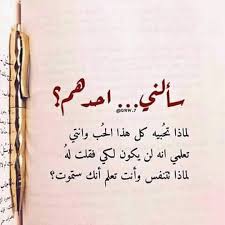 سألني... احدهم؟
@DRW_7
لماذا تحُبيه كل هذا الحُب وانتي
تعلمي انه لن يكون لكي فقلت لهُ
لماذا تتنفس وأنت تعلم أنك ستموت؟